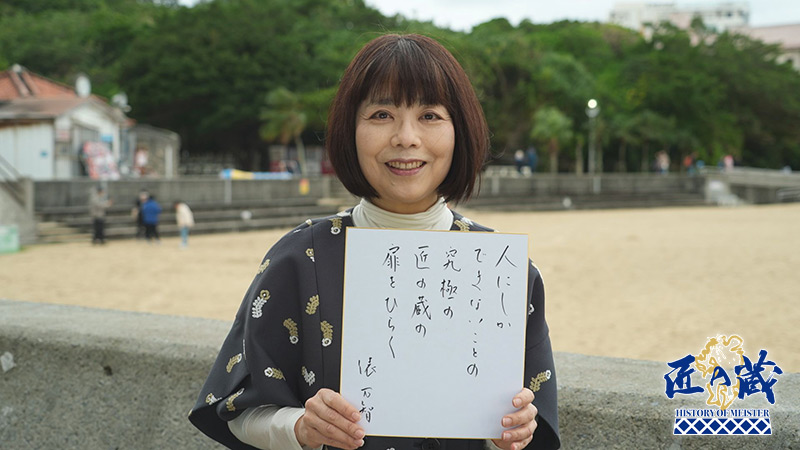 人にしか
できないことの
究極の
匠の蔵の
扉をひらく
俵万智
匠の蔵
HISTORY OF MEISTER